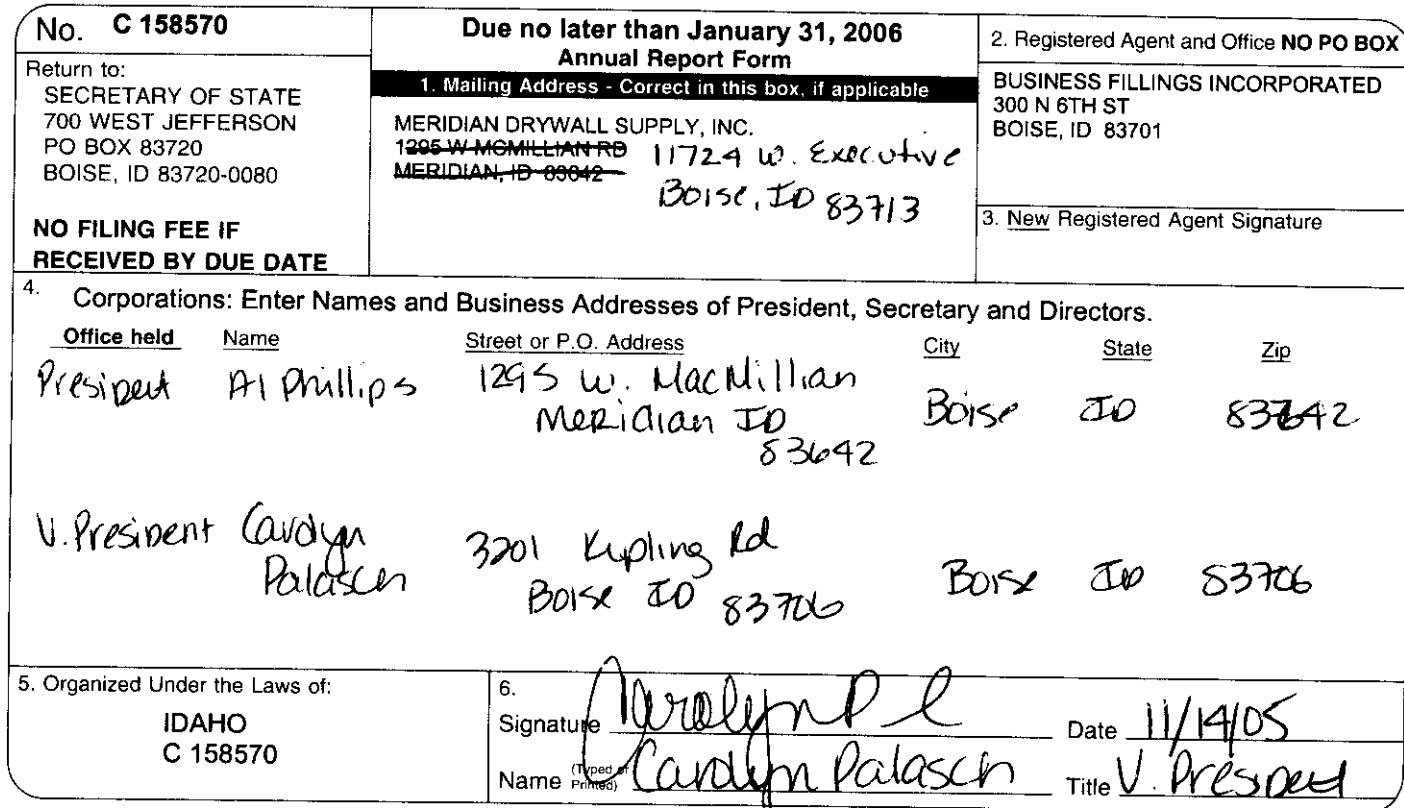 No. C 158570
Return to:
SECRETARY OF STATE
700 WEST JEFFERSON
PO BOX 83720
BOISE, ID 83720-0080
NO FILING FEE IF
RECEIVED BY DUE DATE
Due no later than January 31, 2006
Annual Report Form
1. Mailing Address - Correct in this box, if applicable
MERIDIAN DRYWALL SUPPLY, INC.
1295 W MCMILLIAN RD 11724 W. Executive
MERIDIAN, ID 83642
Boise, ID 83713
2. Registered Agent and Office NO PO BOX
BUSINESS FILLINGS INCORPORATED
300 N 6TH ST
BOISE, ID 83701
3. New Registered Agent Signature
4. Corporations: Enter Names and Business Addresses of President, Secretary and Directors.
Office held Name Street or P.O. Address City State Zip
President Al Phillips 1295 W. MacMillian
Meridian ID Boise ID 83642
83642
V. President Carolyn 3201 Kipling Rd
Palasch Boise ID 83706 Boise ID 83706
5. Organized Under the Laws of:
IDAHO
C 158570
6.
Signature Carolyn P Date 11/14/05
Name (Typed or Printed) Carolyn Palasch Title V. President